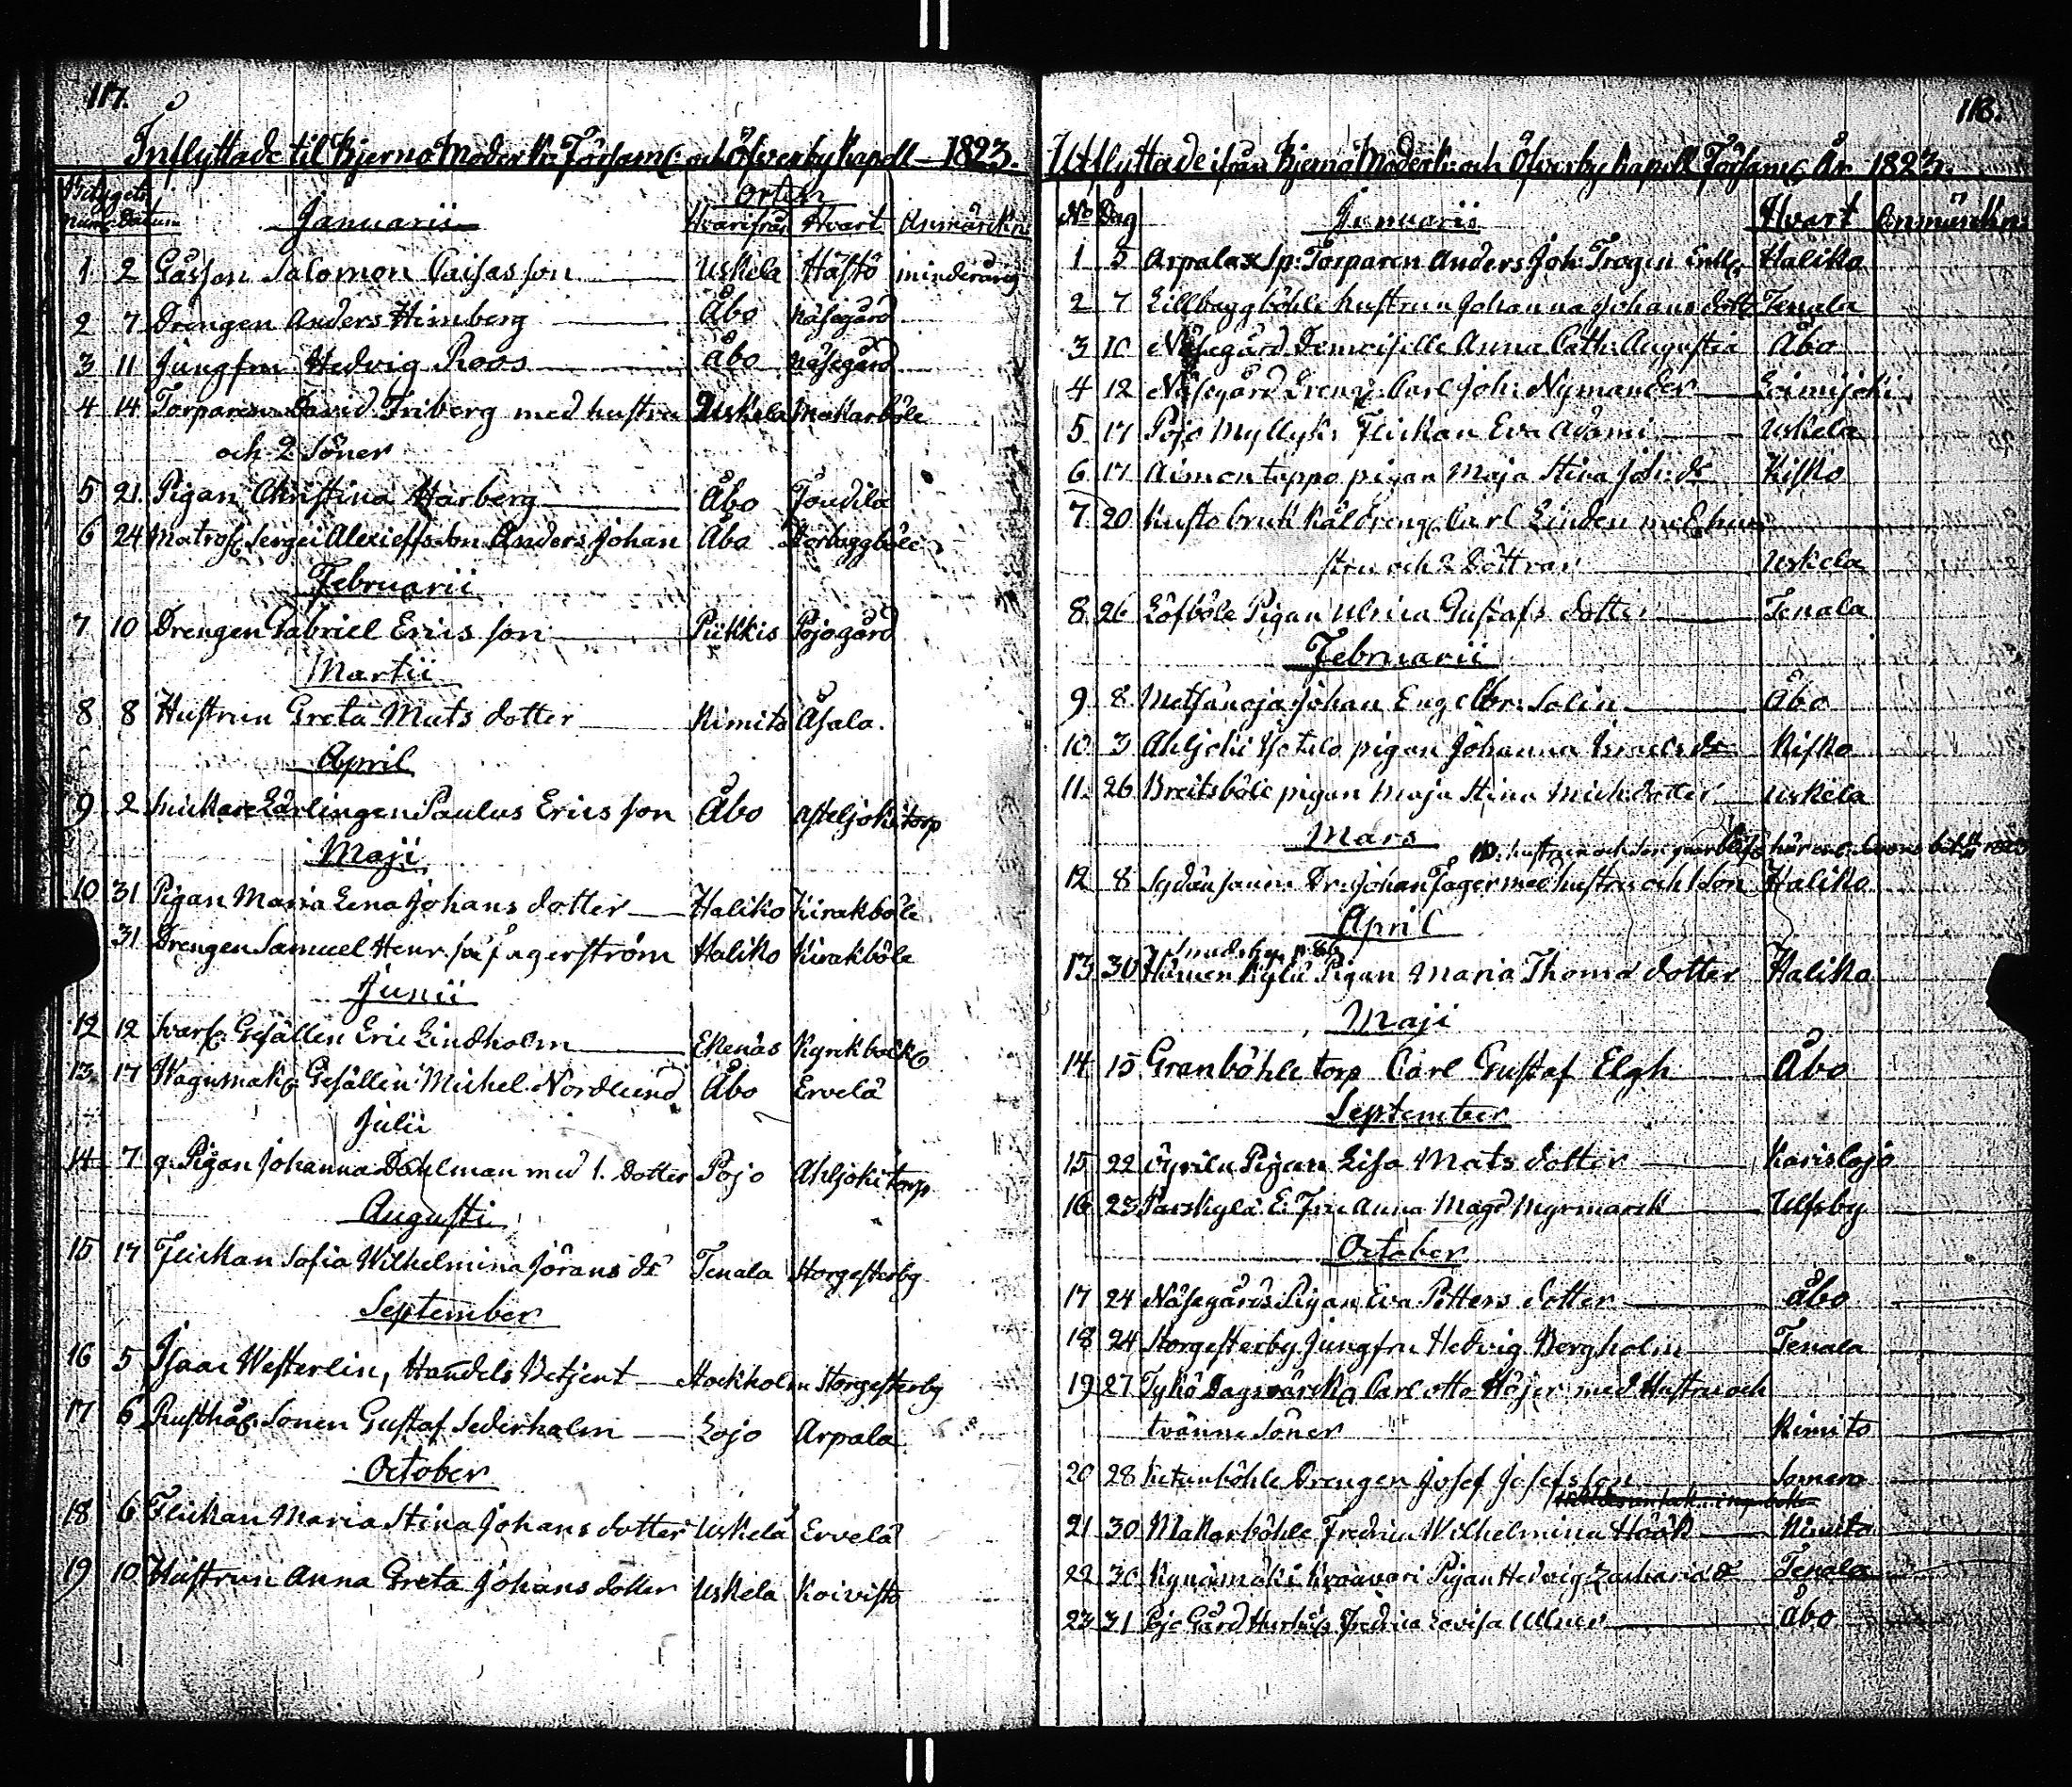 117.
Inflyttade til Bjerno Moder k: Församl: och Öfverby Kapell - 1823.
Betygets Orten
num: Datum Januarii Hvarifrån Hvart Anmärkn:
1 2 Gåssen Salomon Caisasson Uskela Håstö minderårig
2 7 Drengen Anders Himberg Åbo Näsegård
3 11 Jungfru Hedvig Roos Åbo Näsegård
4 14 Torparen David Friberg med hustru Uskela Makarböle
och 2 Söner
5 21 Pigan Christina Harberg Åbo
6 24 Matros: Sergei Alexieffs son Anders Johan Åbo
Februarii
7 10 Drengen Gabriel Ericsson Piikkis Pojogård
Martii
8 8 Hustrun Greta Matsdotter Kimito Åsala.
April
9 2 Snickare Lärlingen Paulus Ericsson Åbo Asteljoki torp
Maji
10 31 Pigan Maria Lena Johansdotter Haliko Kirakböle
31 Drengen Samuel Henr: son Fagerström Haliko Kirakböle
Junii
12 12 Svarf: Gesällen Eric Lindholm Ekenäs
13 17 Wagnmak: Gesällen Michel Nordlund Åbo Ervelä
Julii
14 7 g. Pigan Johanna Dahlman med 1. Dotter Pojo Ahljoki torp
Augusti
15 17 Flickan Sofia Wilhelmina Jöransdr Tenala Storgesterby
September
16 5 Isaac Westerlin, Handels Betjent Stockholm Storgesterby
17 6 Rusthål: Sonen Gustaf Sederholm Lojo Arpala
October
18 6 Flickan Maria Stina Johansdotter Uskela Ervelä
19 10 Hustrun Anna Greta Johansdotter Uskela Koivisto
118.
Utflyttade ifrån Bjernå Moderk: och Öfverby Kapell Församl: År 1823.
No Dag Januarii Hvart Anmärkn:
1 5 Arpalax Sp: Torparen Anders Joh: Trogin Enkl: Haliko
2 7 Lillbäggböhle hustrun Johanna Johansdottr Tenala
3 10 Näsegård Demoiselle Anna Cath: Augusta Åbo
4 12 Näsegård Dreng: Carl Joh: Nymander Loimijoki
5 17 Pojo Myllyk: Flickan Eva Adami Uskela
6 17 Aimontappo pigan Maja Stina Joh:dr Kisko
7 20 Kusto bruk Dreng: Carl Linden med hu-
stru och 2 Döttrar Uskela
8 26 Löfböle Pigan Ulrica Gustafsdotter Tenala
Februarii
9 8 Metsänoja Johan Engelbr: Solin Åbo
10 3 Ahljoki pigan Johanna Israelsdr Kisko
11. 26 Breitsböle pigan Maja Stina Mich:dotter Uskela
Mars
12 8 Johan Fager med hustru och 1 Son Haliko
April
13 30 Hämenkylä Pigan Maria Thomædotter Haliko
Maji
14 15 Granböhle torp Carl Gustaf Elgh Åbo
September
15 22 Pigan Lisa Matsdotter Karislojo
16 23 Parskylä E: Fru Anna Magd Myrmarck Ulfsby
October
17 24 Näsegårds Pigan Eva Pettersdotter Åbo
18 24 Storgesterby Jungfru Hedvig Bergholm Tenala
19 27 Tykö Dagsvärck: Carl Otto Höjer med Hustru och
tvänne Söner Kimito
20 28 Ketunböhle Drengen Josef Josefsson Somero
21 30 Makarböhle Fredrica Wilhelmina Höök Kimito
22 30 Kynämäki Pigan Hedvig Zachariædr Tenala
23 31 Pojo Gård Fredrica Lovisa Ullner Åbo